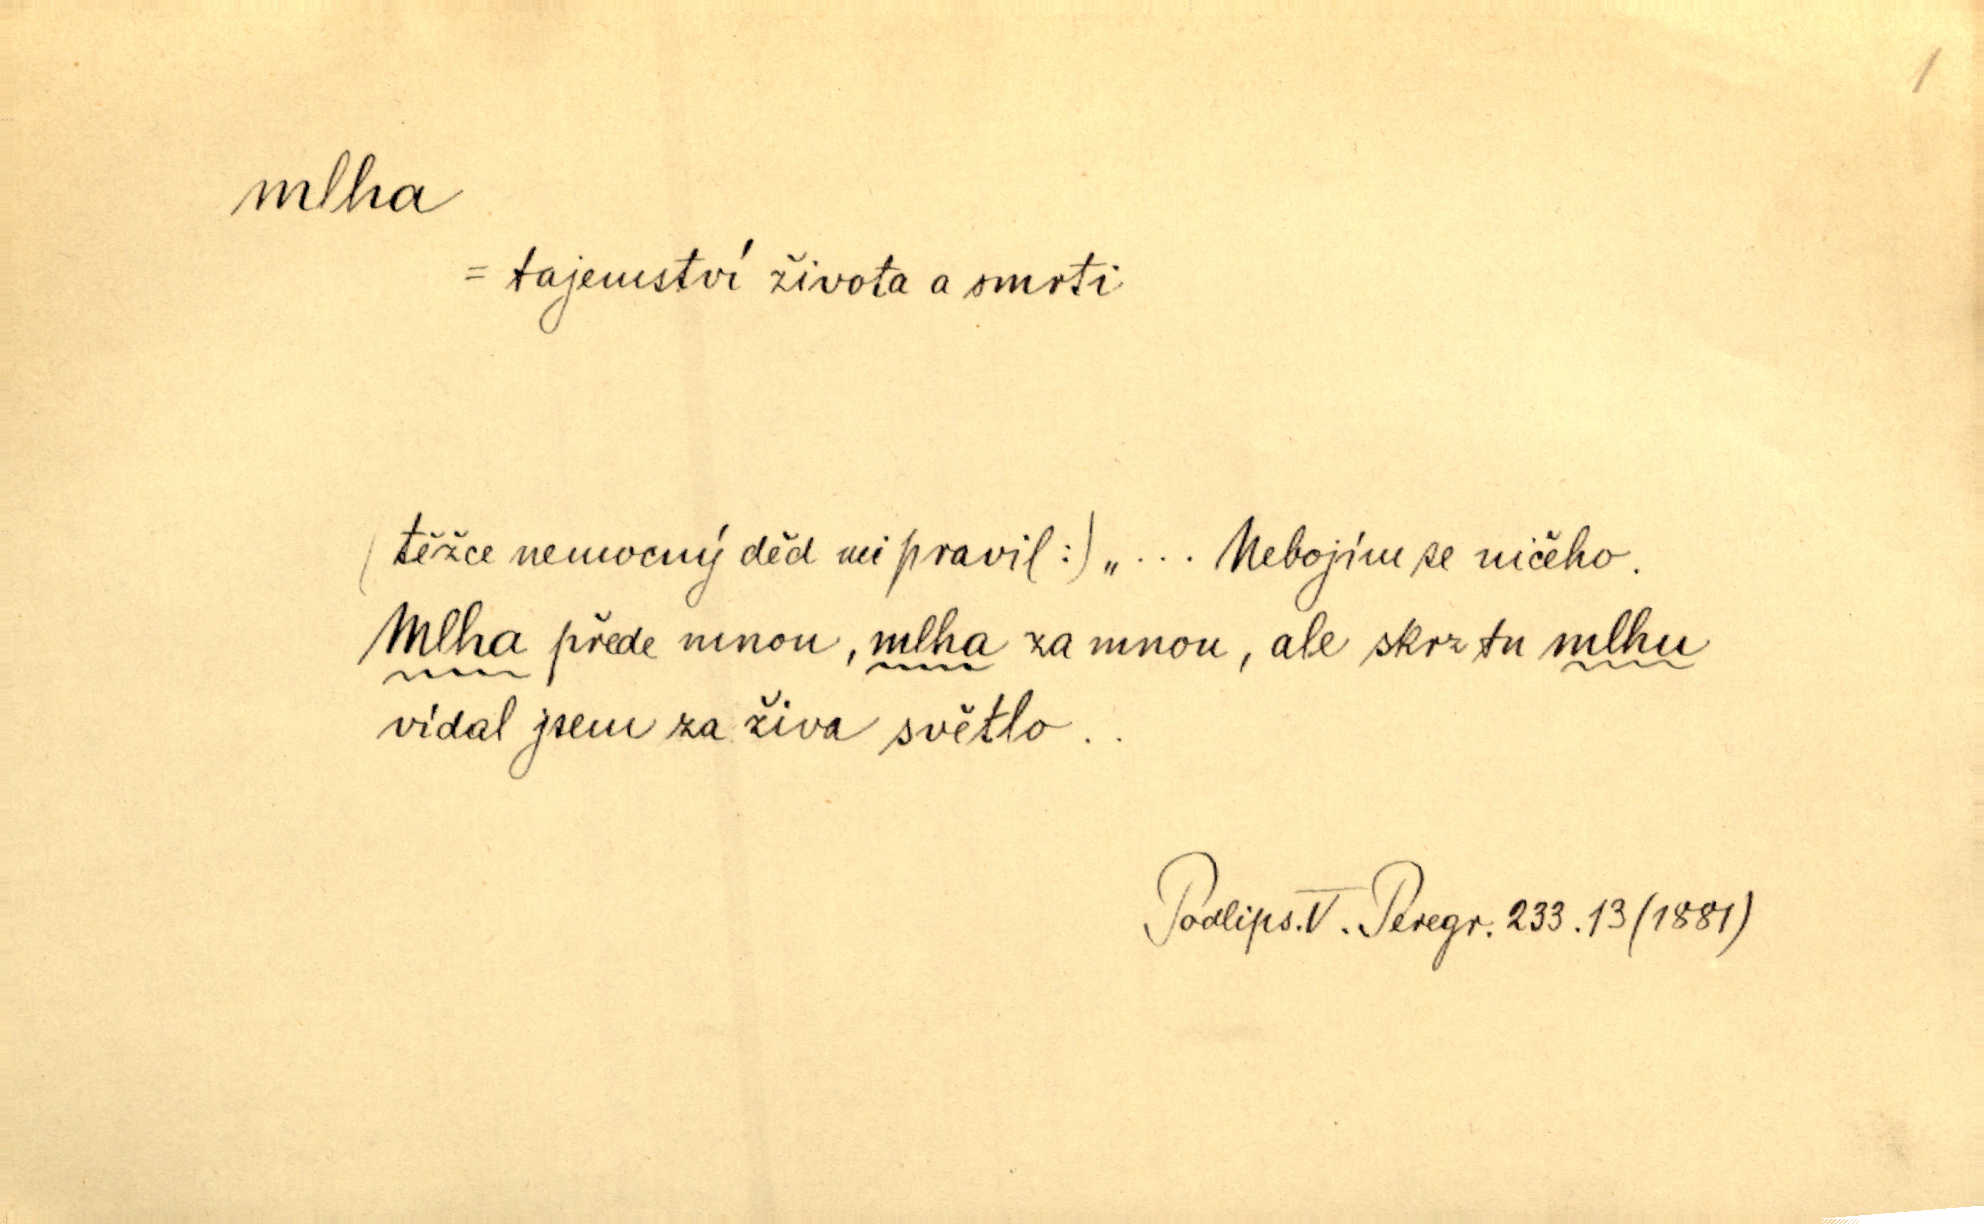 1
mlha
= tajemství života a smrti
(těžce nemocný děd mi pravil:) „... Nebojím se ničeho.
Mlha přede mnou, mlha za mnou, ale skrz tu mlhu
vídal jsem za živa světlo ..
Podlips. V. Peregr. 233.13 (1881)